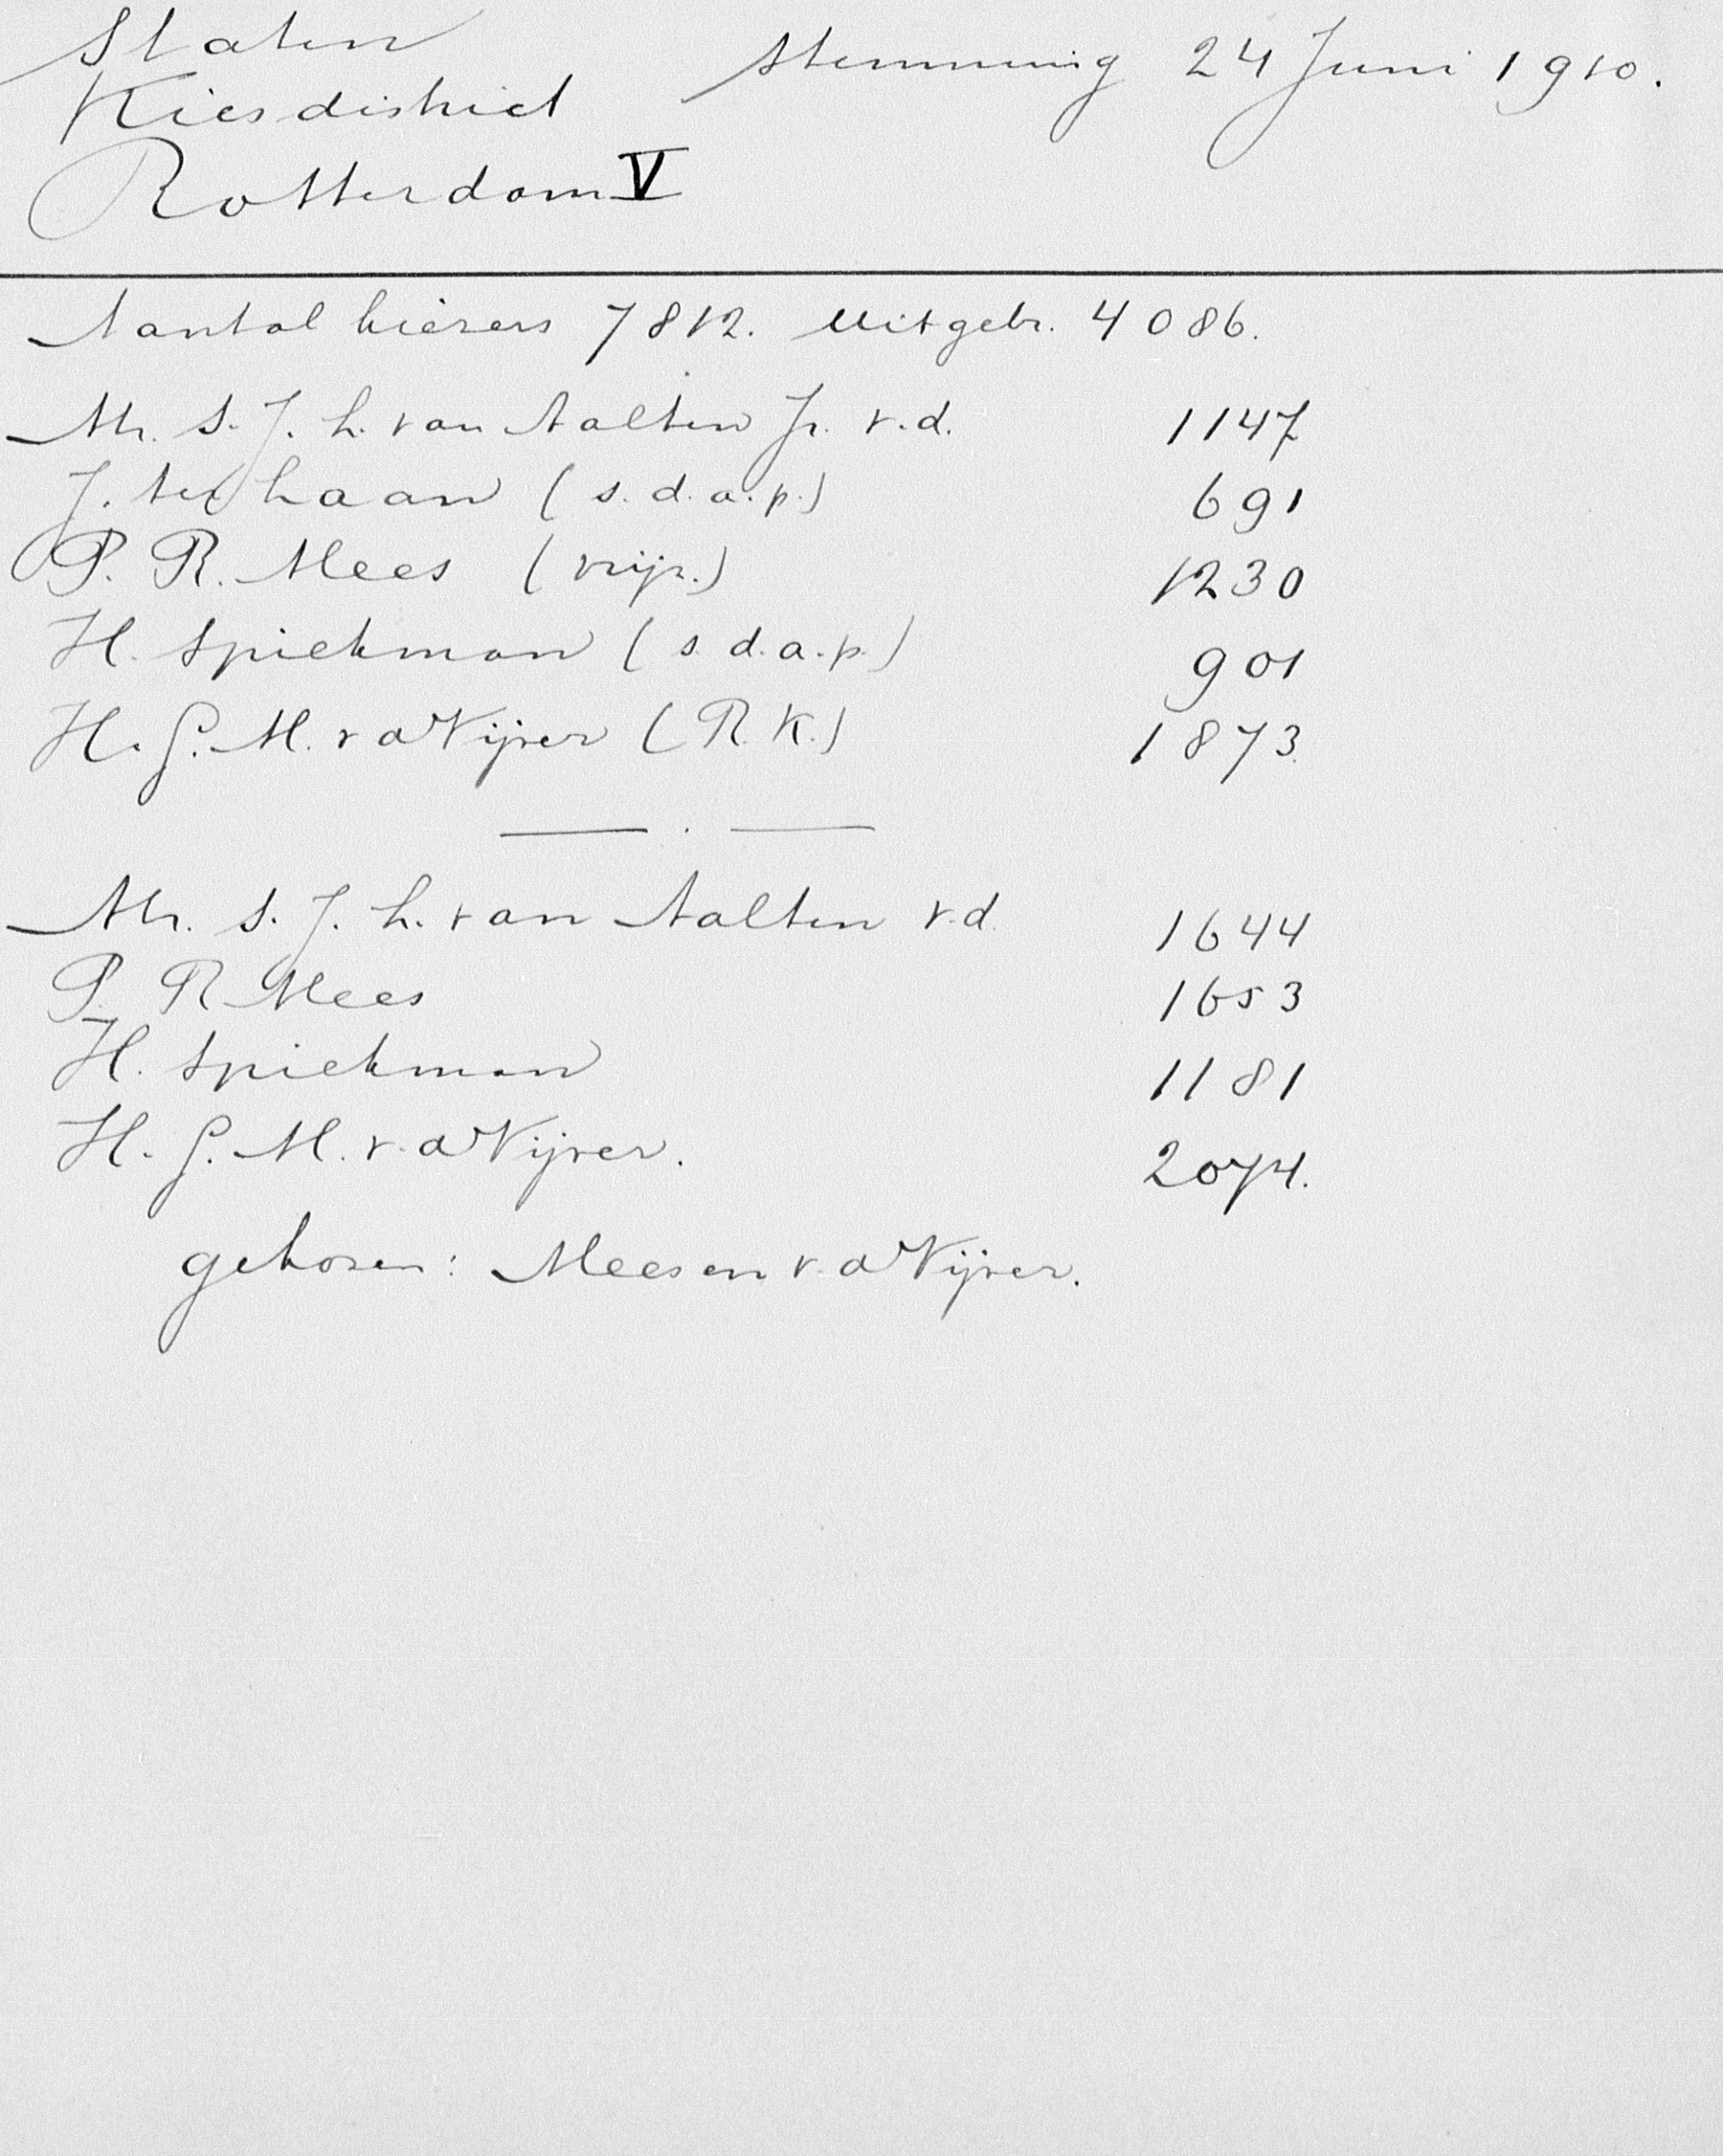 Staten
Kiesdistrict
Rotterdam V
Stemming 24 Juni 1910.
Aantal kiezers 7812. Uitgebr. 4086.
Mr. S. J. L. van Aalten Jr. v.d. 1147
J. ter Laan (s.d.a.p.) 691
P. R. Mees (vrijz.) 1230
H. Spiekman (s.d.a.p.) 901
H. G. M. v d Vijver (R.K.) 1873.
Mr. S. J. L. van Aalten v.d. 1644
P. R Mees 1653
H. Spiekman 1181
H. G. M. v. d Vijver. 2074.
gekozen: Mees en v. d Vijver.